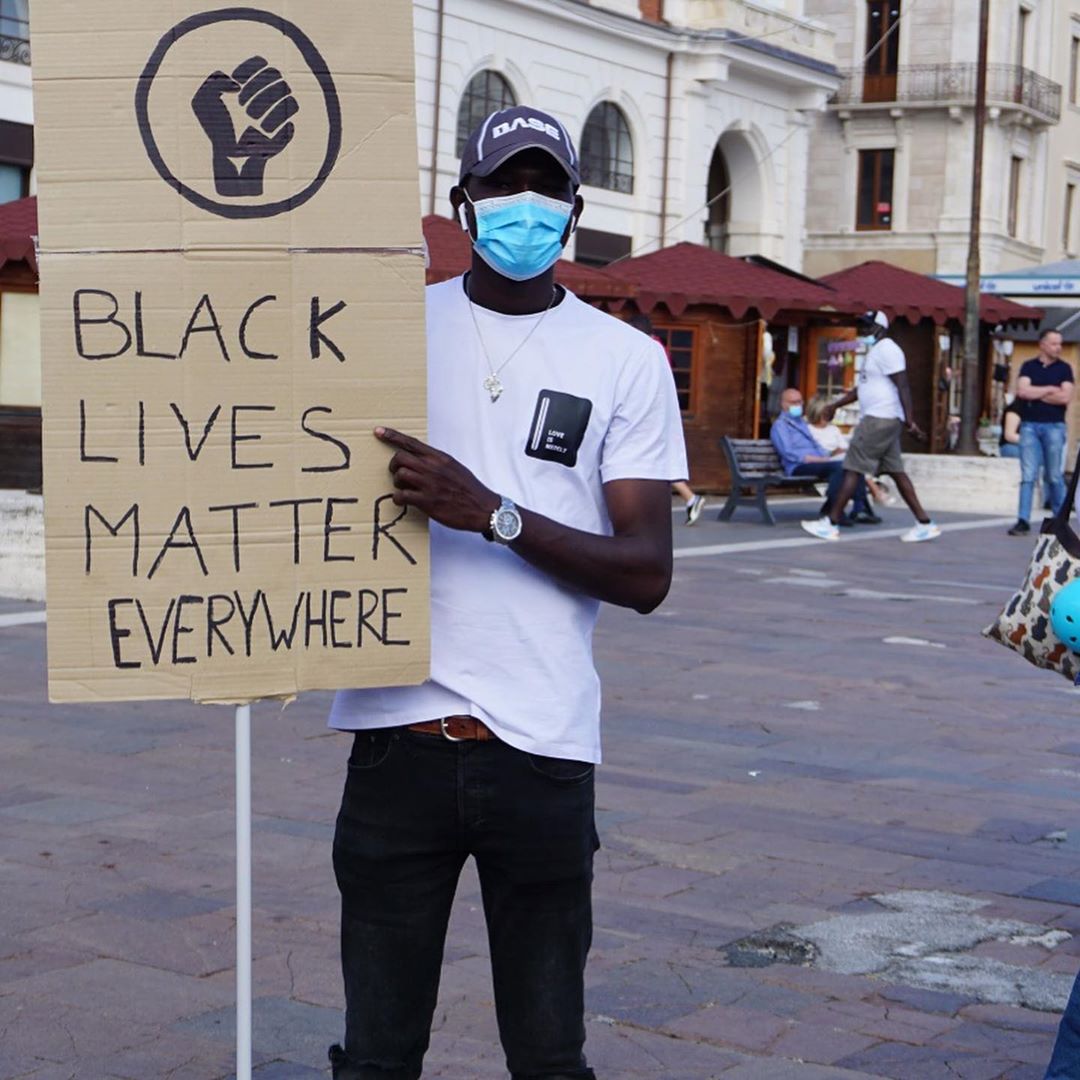 BLACK
LIVES
MATTER
EVERYWHERE
DASE
LOVE
IS
unicef